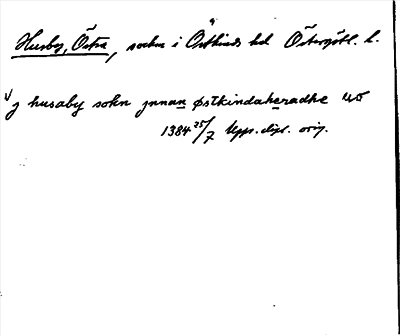 Husby, Östra, socken i Östkinds hd Östergötl. l.
j husaby sokn jnnan østkindaheradhe
1384 25/7 Upps. dipl. orig.